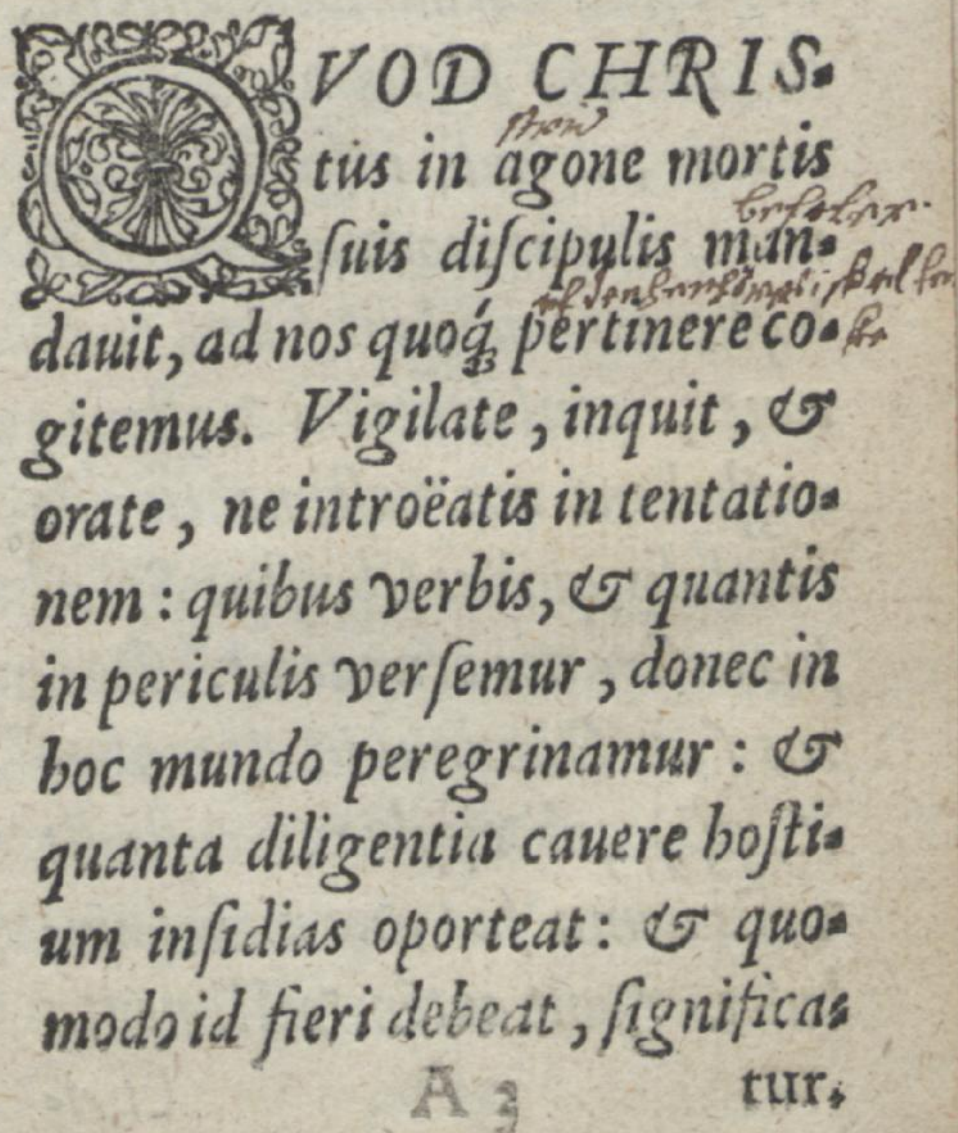 QVOD CHRIS-
tus in agone mortis
ſuis diſcipulis man-
dauit, ad nos quoq́ꝫ pertinere co-
gitemus. Vigilate, inquit, &
orate, ne introëatis in tentatio-
nem: quibus verbis, & quantis
in periculis verſemur, donec in
hoc mundo peregrinamur: &
quanta diligentia cauere hoſti-
um inſidias oporteat: & quo-
modo id fieri debeat, ſignifica-
A 3 tur.